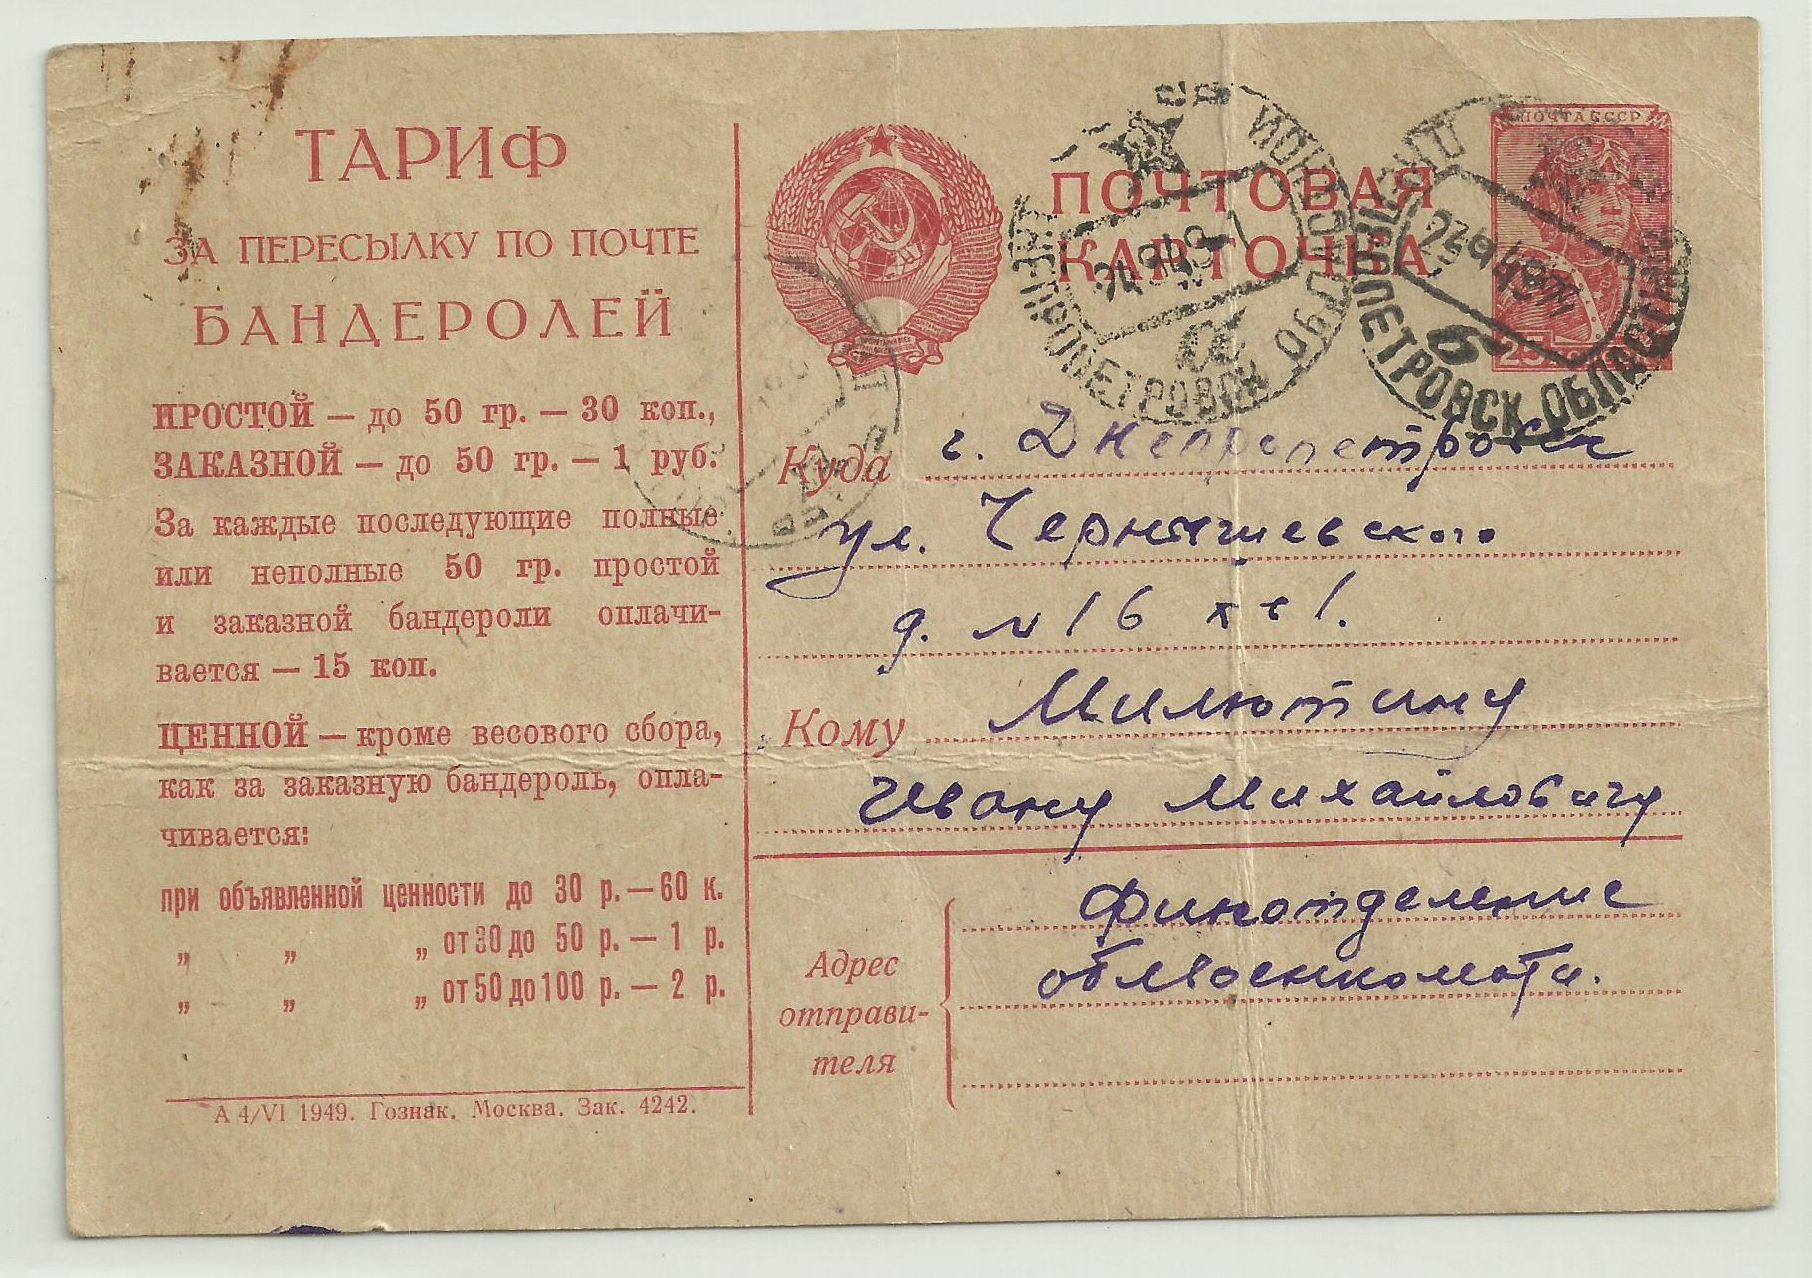 ТАРИФ
ЗА ПЕРЕСЫЛКУ ПО ПОЧТЕ
БАНДЕРОЛЕЙ
ПРОСТОЙ — до 50 гр. — 30 коп.,
ЗАКАЗНОЙ — до 50 гр. — 1 руб.
За каждые последующие полные
или неполные 50 гр. простой
и заказной бандероли оплачи-
вается — 15 коп.
ЦЕННОЙ — кроме весового сбора,
как за заказную бандероль, опла-
чивается:
при объявленной ценности до 30 р. — 60 к.
„ „ „ от 30 до 50 р. — 1 р.
„ „ „ от 50 до 100 р. — 2 р.
А 4/VI 1949. Гознак. Москва. Зак. 4242.
ПОЧТОВАЯ
КАРТОЧКА
ПОЧТА СССР
25
ДНЕПРОПЕТРОВСК ОБЛАСТНОЙ
ДНЕПРОПЕТРОВСК ОБЛАСТНОЙ
б
Куда г. Днепропетровск
ул. Чернышевского
д. № 16 кв 1.
Кому Милютину
Ивану Михайловичу
Адрес
отправи-
теля
Финотделение
облвоенкомата.